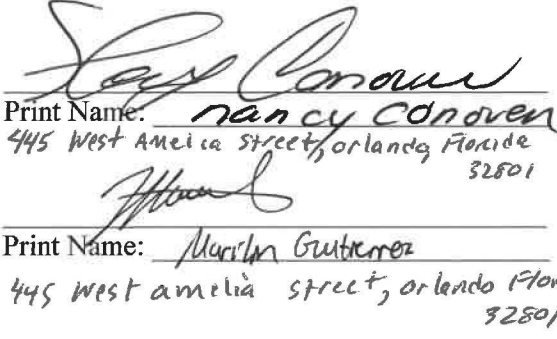 Nancy Conover
Print Name: nancy Conover
445 West Amelia street, orlando, Florida
32801
Print Name: Marilyn Gutierrez
445 West amelia street, orlando Flor
32801